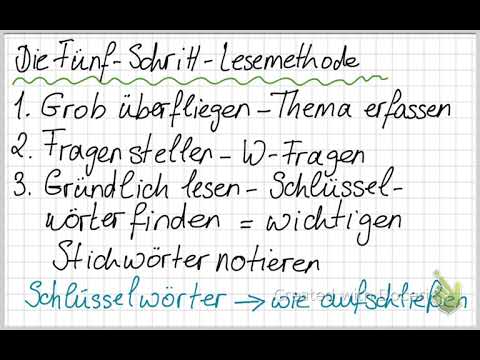 Die Fünf-Schritt-Lesemethode
1. Grob überfliegen - Thema erfassen
2. Fragen stellen - W-Fragen
3. Gründlich lesen - Schlüssel-
wörter finden = wichtigen
Stichwörter notieren
Schlüsselwörter → wie aufschließen
Created with Doceri